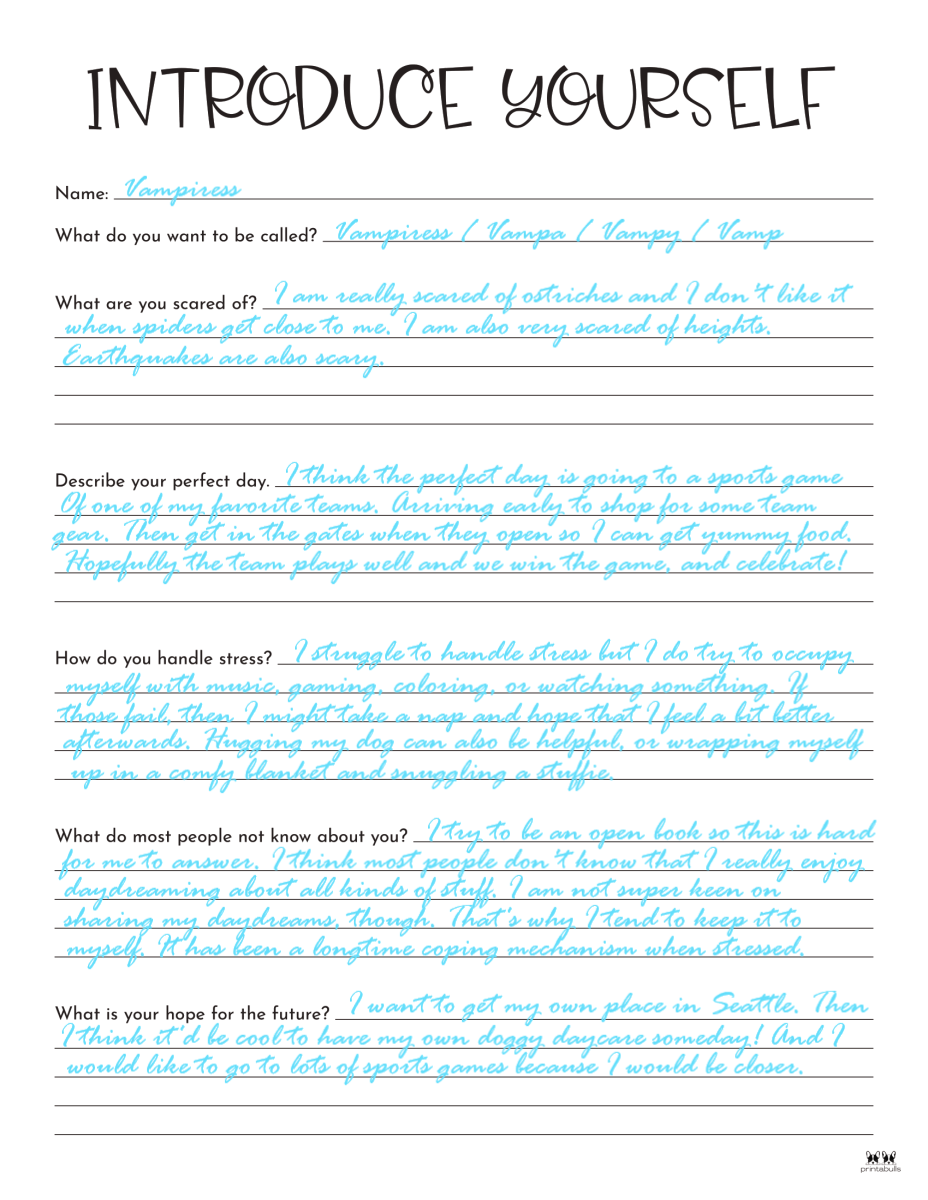 INTRODUCE YOURSELF
Name: Vampiress
What do you want to be called? Vampiress / Vampa / Vampy / Vamp
What are you scared of? I am really scared of ostriches and I don't like it
when spiders get close to me. I am also very scared of heights.
Earthquakes are also scary.
Describe your perfect day. I think the perfect day is going to a sports game
Of one of my favorite teams. Arriving early to shop for some team
gear. Then get in the gates when they open so I can get yummy food.
Hopefully the team plays well and we win the game, and celebrate!
How do you handle stress? I struggle to handle stress but I do try to occupy
myself with music, gaming, coloring, or watching something. If
those fail, then I might take a nap and hope that I feel a bit better
afterwards. Hugging my dog can also be helpful, or wrapping myself
up in a comfy blanket and snuggling a stuffie.
What do most people not know about you? I try to be an open book so this is hard
for me to answer. I think most people don't know that I really enjoy
daydreaming about all kinds of stuff. I am not super keen on
sharing my daydreams, though. That's why I tend to keep it to
myself. It has been a longtime coping mechanism when stressed.
What is your hope for the future? I want to get my own place in Seattle. Then
I think it'd be cool to have my own doggy daycare someday! And I
would like to go to lots of sports games because I would be closer.
printabulls